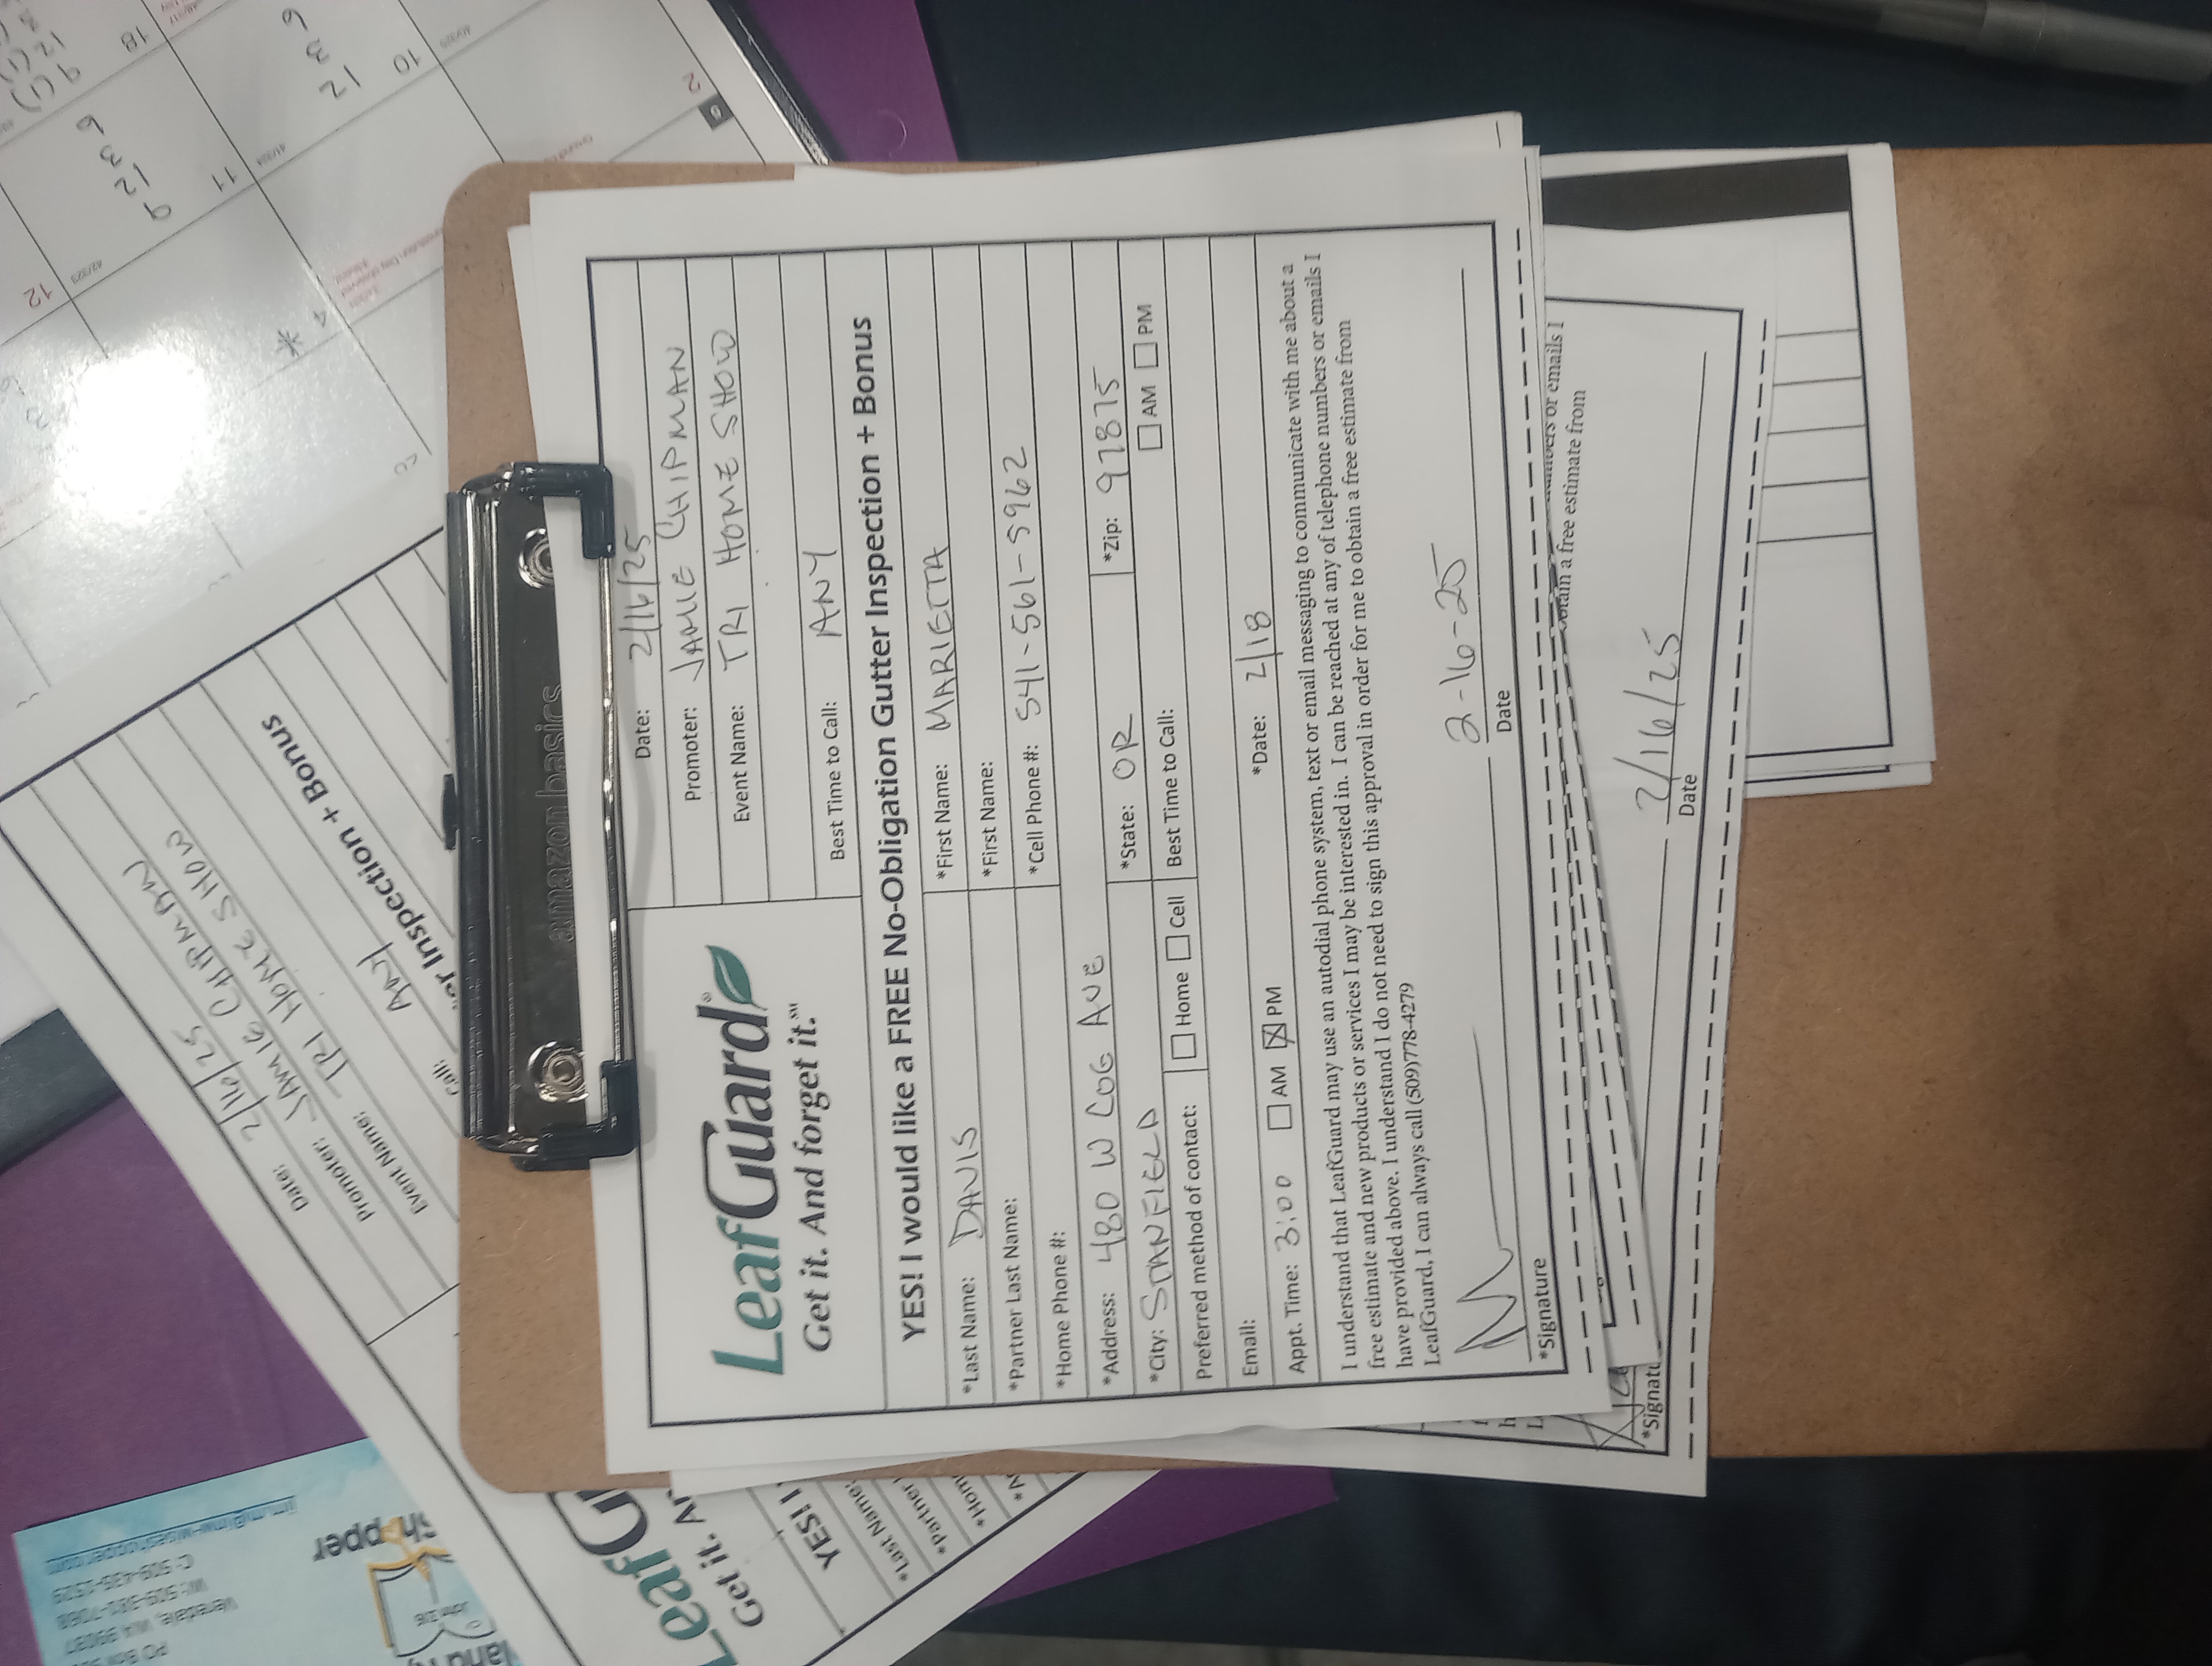 Date: 2/16/25
Promoter: JAMIE CHIPMAN
Event Name: TRI HOME SHOW
Call: ANY
er Inspection + Bonus
Shopper
LeafGu
Get it. An
YES! I
*Last Name:
*Partner
*Hom
amazon basics
Date: 2/16/25
Promoter: JAMIE CHIPMAN
Event Name: TRI HOME SHOW
LeafGuard®
Get it. And forget it.℠
Best Time to Call: ANY
YES! I would like a FREE No-Obligation Gutter Inspection + Bonus
*Last Name: DAVIS *First Name: MARIETTA
*Partner Last Name: *First Name:
*Home Phone #: *Cell Phone #: 541-561-5962
*Address: 480 W COE AVE
*City: STANFIELD *State: OR *Zip: 97875
Preferred method of contact: Home Cell Best Time to Call: AM PM
Email:
Appt. Time: 3:00 AM PM *Date: 2/18
I understand that LeafGuard may use an autodial phone system, text or email messaging to communicate with me about a
free estimate and new products or services I may be interested in. I can be reached at any of telephone numbers or emails I
have provided above. I understand I do not need to sign this approval in order for me to obtain a free estimate from
LeafGuard, I can always call (509)778-4279
2-16-25
*Signature Date
numbers or emails I
obtain a free estimate from
2/16/25
*Signatu Date